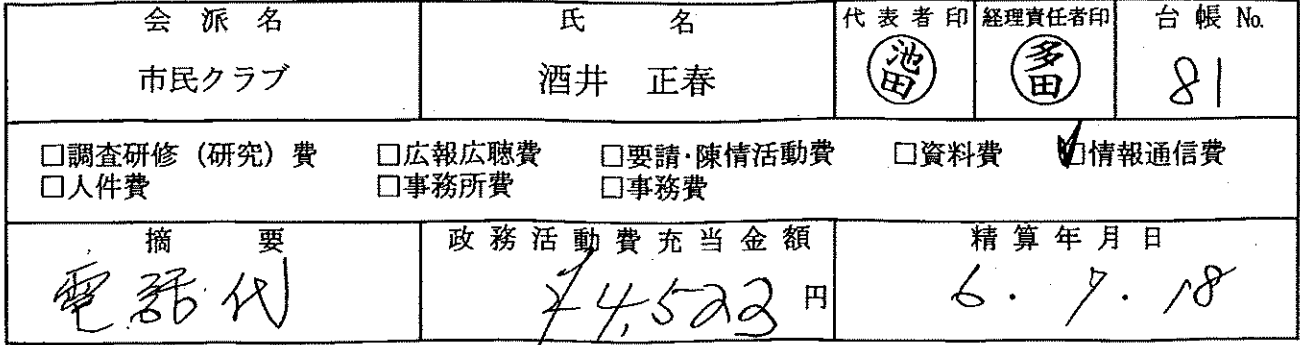 会派名 氏名 代表者印 経理責任者印 台帳 No.
市民クラブ 酒井 正春 池田 多田 81
□調査研修（研究）費 □広報広聴費 □要請・陳情活動費 □資料費 ☑情報通信費
□人件費 □事務所費 □事務費
摘要 政務活動費充当金額 精算年月日
電話代 ¥4,523円 6.7.18